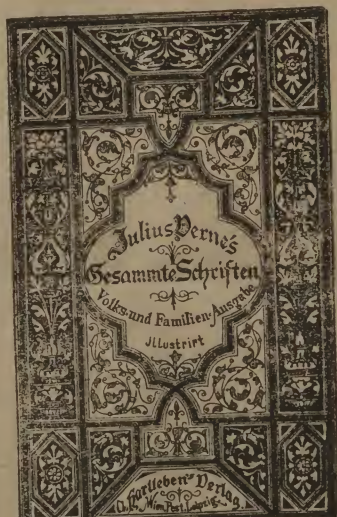 Julius Verne's
Gesammte Schriften
Volks- und Familien-Ausgabe
Illustrirt
A. Hartleben's Verlag.
Wien, Pest, Leipzig.